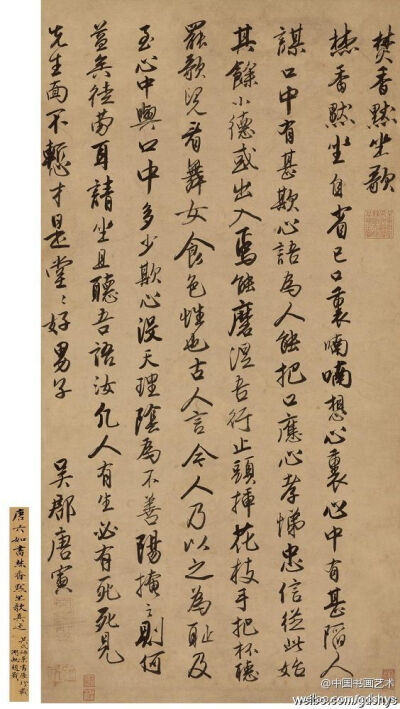 焚香默坐歌
焚香黙坐自省己口裏喃喃想心裏心中有甚陷人
謀口中有甚欺心語為人能把口應心孝悌忠信從此始
其餘小德或出入焉能磨涅吾行止頭揷花枝手把杯聽
罷歌児看舞女食色性也古人言今人乃以之為恥及
至心中與口中多少欺心沒天理陰為不善陽掩之則何
益矣徒勞耳請坐且聽吾語汝凡人有生必有死死見
先生面不慙才是堂〻好男子 吳郡唐寅
唐六如書焚香默坐歌真迹
@中国书画艺术
weibo.com/gdshys